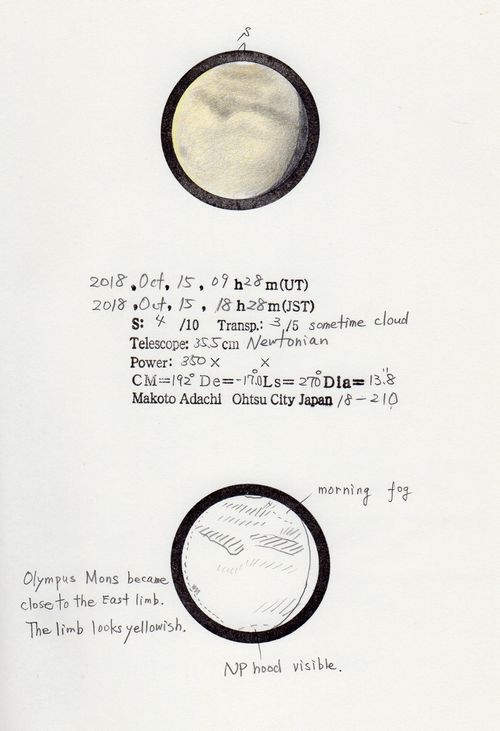 S
2018, Oct, 15, 09 h 28 m (UT)
2018, Oct, 15, 18 h 28 m (JST)
S: 4 /10 Transp.: 3 /5 sometime cloud
Telescope: 35.5 cm Newtonian
Power: 350 × ×
CM=192° De=-17.0° Ls=270° Dia=13.8"
Makoto Adachi Ohtsu City Japan 18-210
morning fog
Olympus Mons became
close to the East limb.
The limb looks yellowish.
NP hood visible.